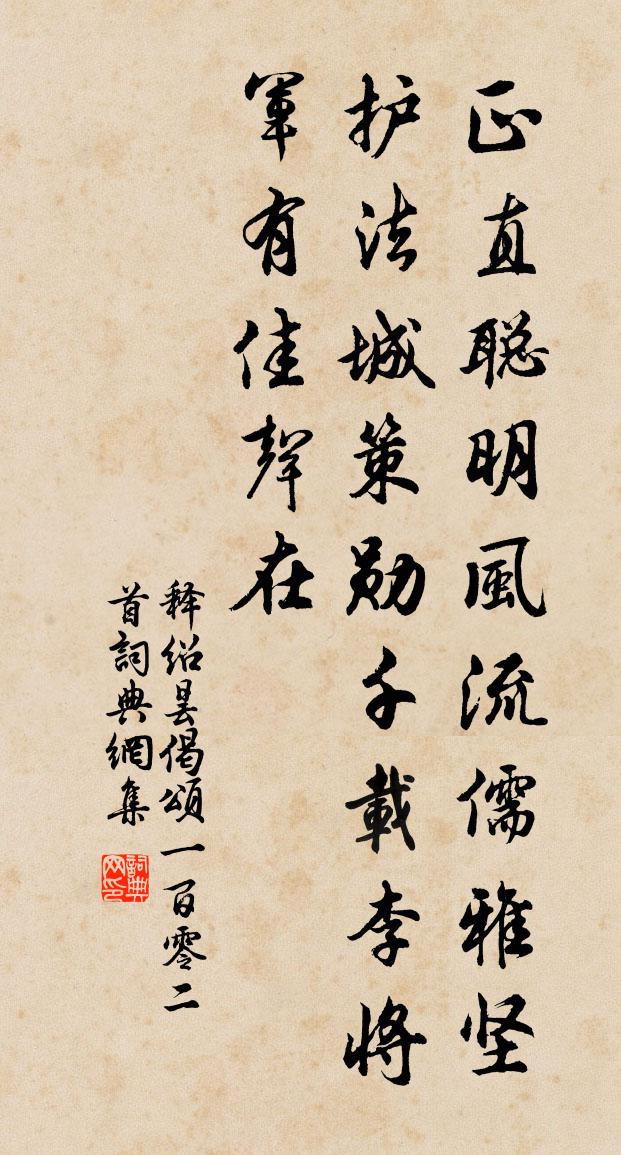 正直聪明風流儒雅坚
护法城策勋千載李將
軍有佳聲在
释绍昙偈頌一百零二
首詞典網集
詞典
网印